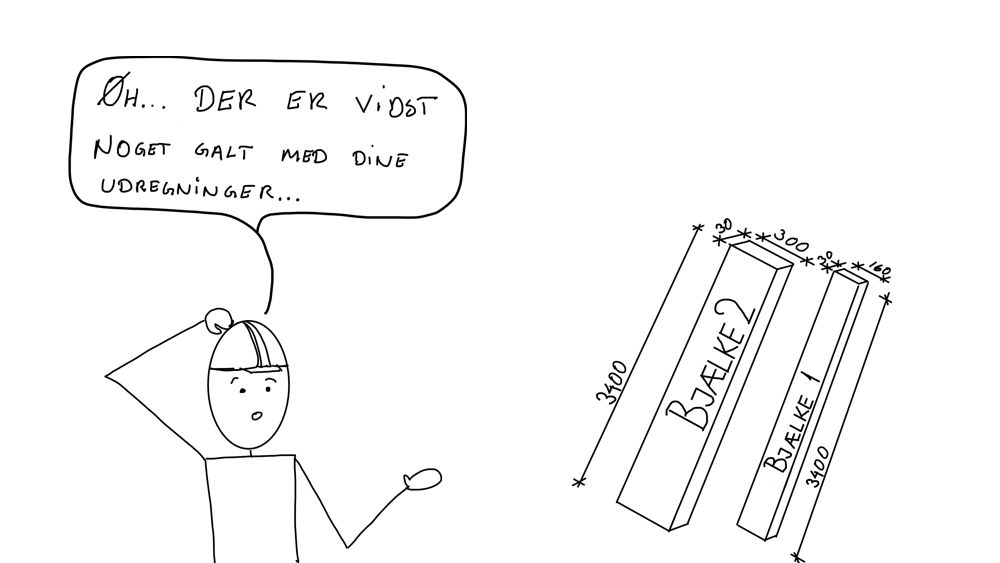 ØH... DER ER VIDST
NOGET GALT MED DINE
UDREGNINGER...
30
300
30
160
3400
BJÆLKE 2
BJÆLKE 1
3400